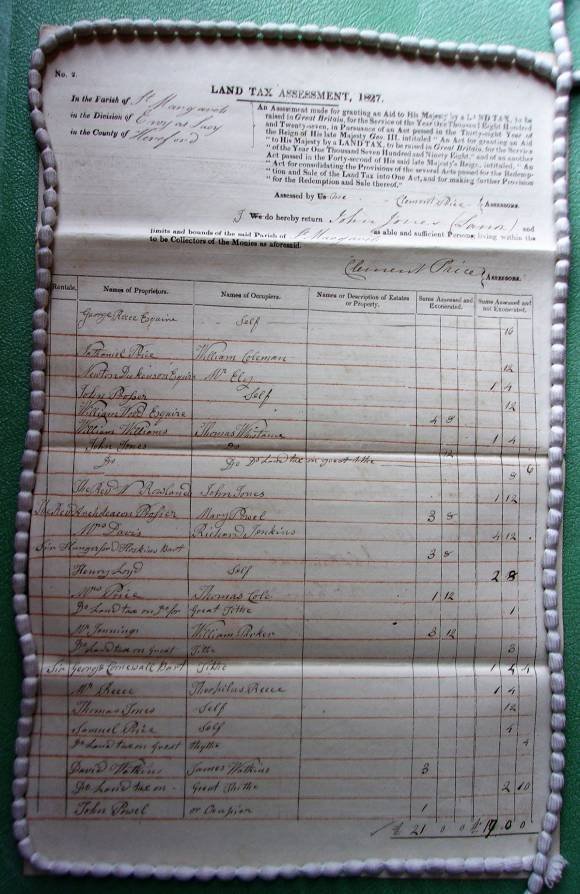 No. 2.
LAND TAX ASSESSMENT, 1827.
In the Parish of St Margarets
in the Division of Ewyas Lacy
in the County of Hereford
An Assessment made for granting an Aid to His Majesty by a LAND TAX, to be
raised in Great Britain, for the Service of the Year One Thousand Eight Hundred
and Twenty-seven, in Pursuance of an Act passed in the Thirty-eight Year of
the Reign of His late Majesty Geo. III. intituled "An Act for granting an Aid
"to His Majesty by a LAND TAX, to be raised in Great Britain, for the Service
"of the Year One Thousand Seven Hundred and Ninety Eight," and of an another
Act passed in the Forty-second of His said late Majesty's Reign, intituled, "An
"Act for consolidating the Provisions of the several Acts passed for the Redemp-
"tion and Sale of the Land Tax into One Act, and for making further Provision
"for the Redemption and Sale thereof."
Assessed by Us Clement Price ASSESSORS.
I We do hereby return John Jones and
limits and bounds of the said Parish of St Margarets as able and sufficient Persons, living within the
to be Collectors of the Monies as aforesaid.
Clement Price ASSESSORS.
Rentals. Names of Proprietors. Names of Occupiers. Names or Description of Estates or Property. Sums Assessed and Exonerated. Sums Assessed and not Exonerated.
George Reece Esquire Self 16
Nathaniel Price William Coleman 12
Newton Dickinson Esquire Mr Eley 1 4
John Prosser Self 12
William Wood Esquire 4 8
William Williams Thomas Whistance 1 4
John Jones Do 12
Do Do Do Land tax on great tithe 6
9
The Revd Rowland John Jones 1 12
The Revd Archdeacon Prosser Mary Powel 3 8
Mrs Davis Richard Jenkins 4 12
Sir Hungerford Hoskins Bart 3 8
Henry Loyd Self 2 8
Mrs Price Thomas Cole 1 12
Do Land tax on Do for Great Tithe 1
Mr Jennings William Parker 3 12
Do Land tax on Great Tithe 3
Sir George Cornewall Bart Tithe 1 4 4
Mr Reece Theophilus Reece 1 4
Thomas Jones Self 12
Samuel Price Self 4
Do Land tax on Great thythe 4
David Watkins James Watkins 3
Do Land tax on Great 2 10
John Powel or 1
£ 21 0 0 £ 19 0 0